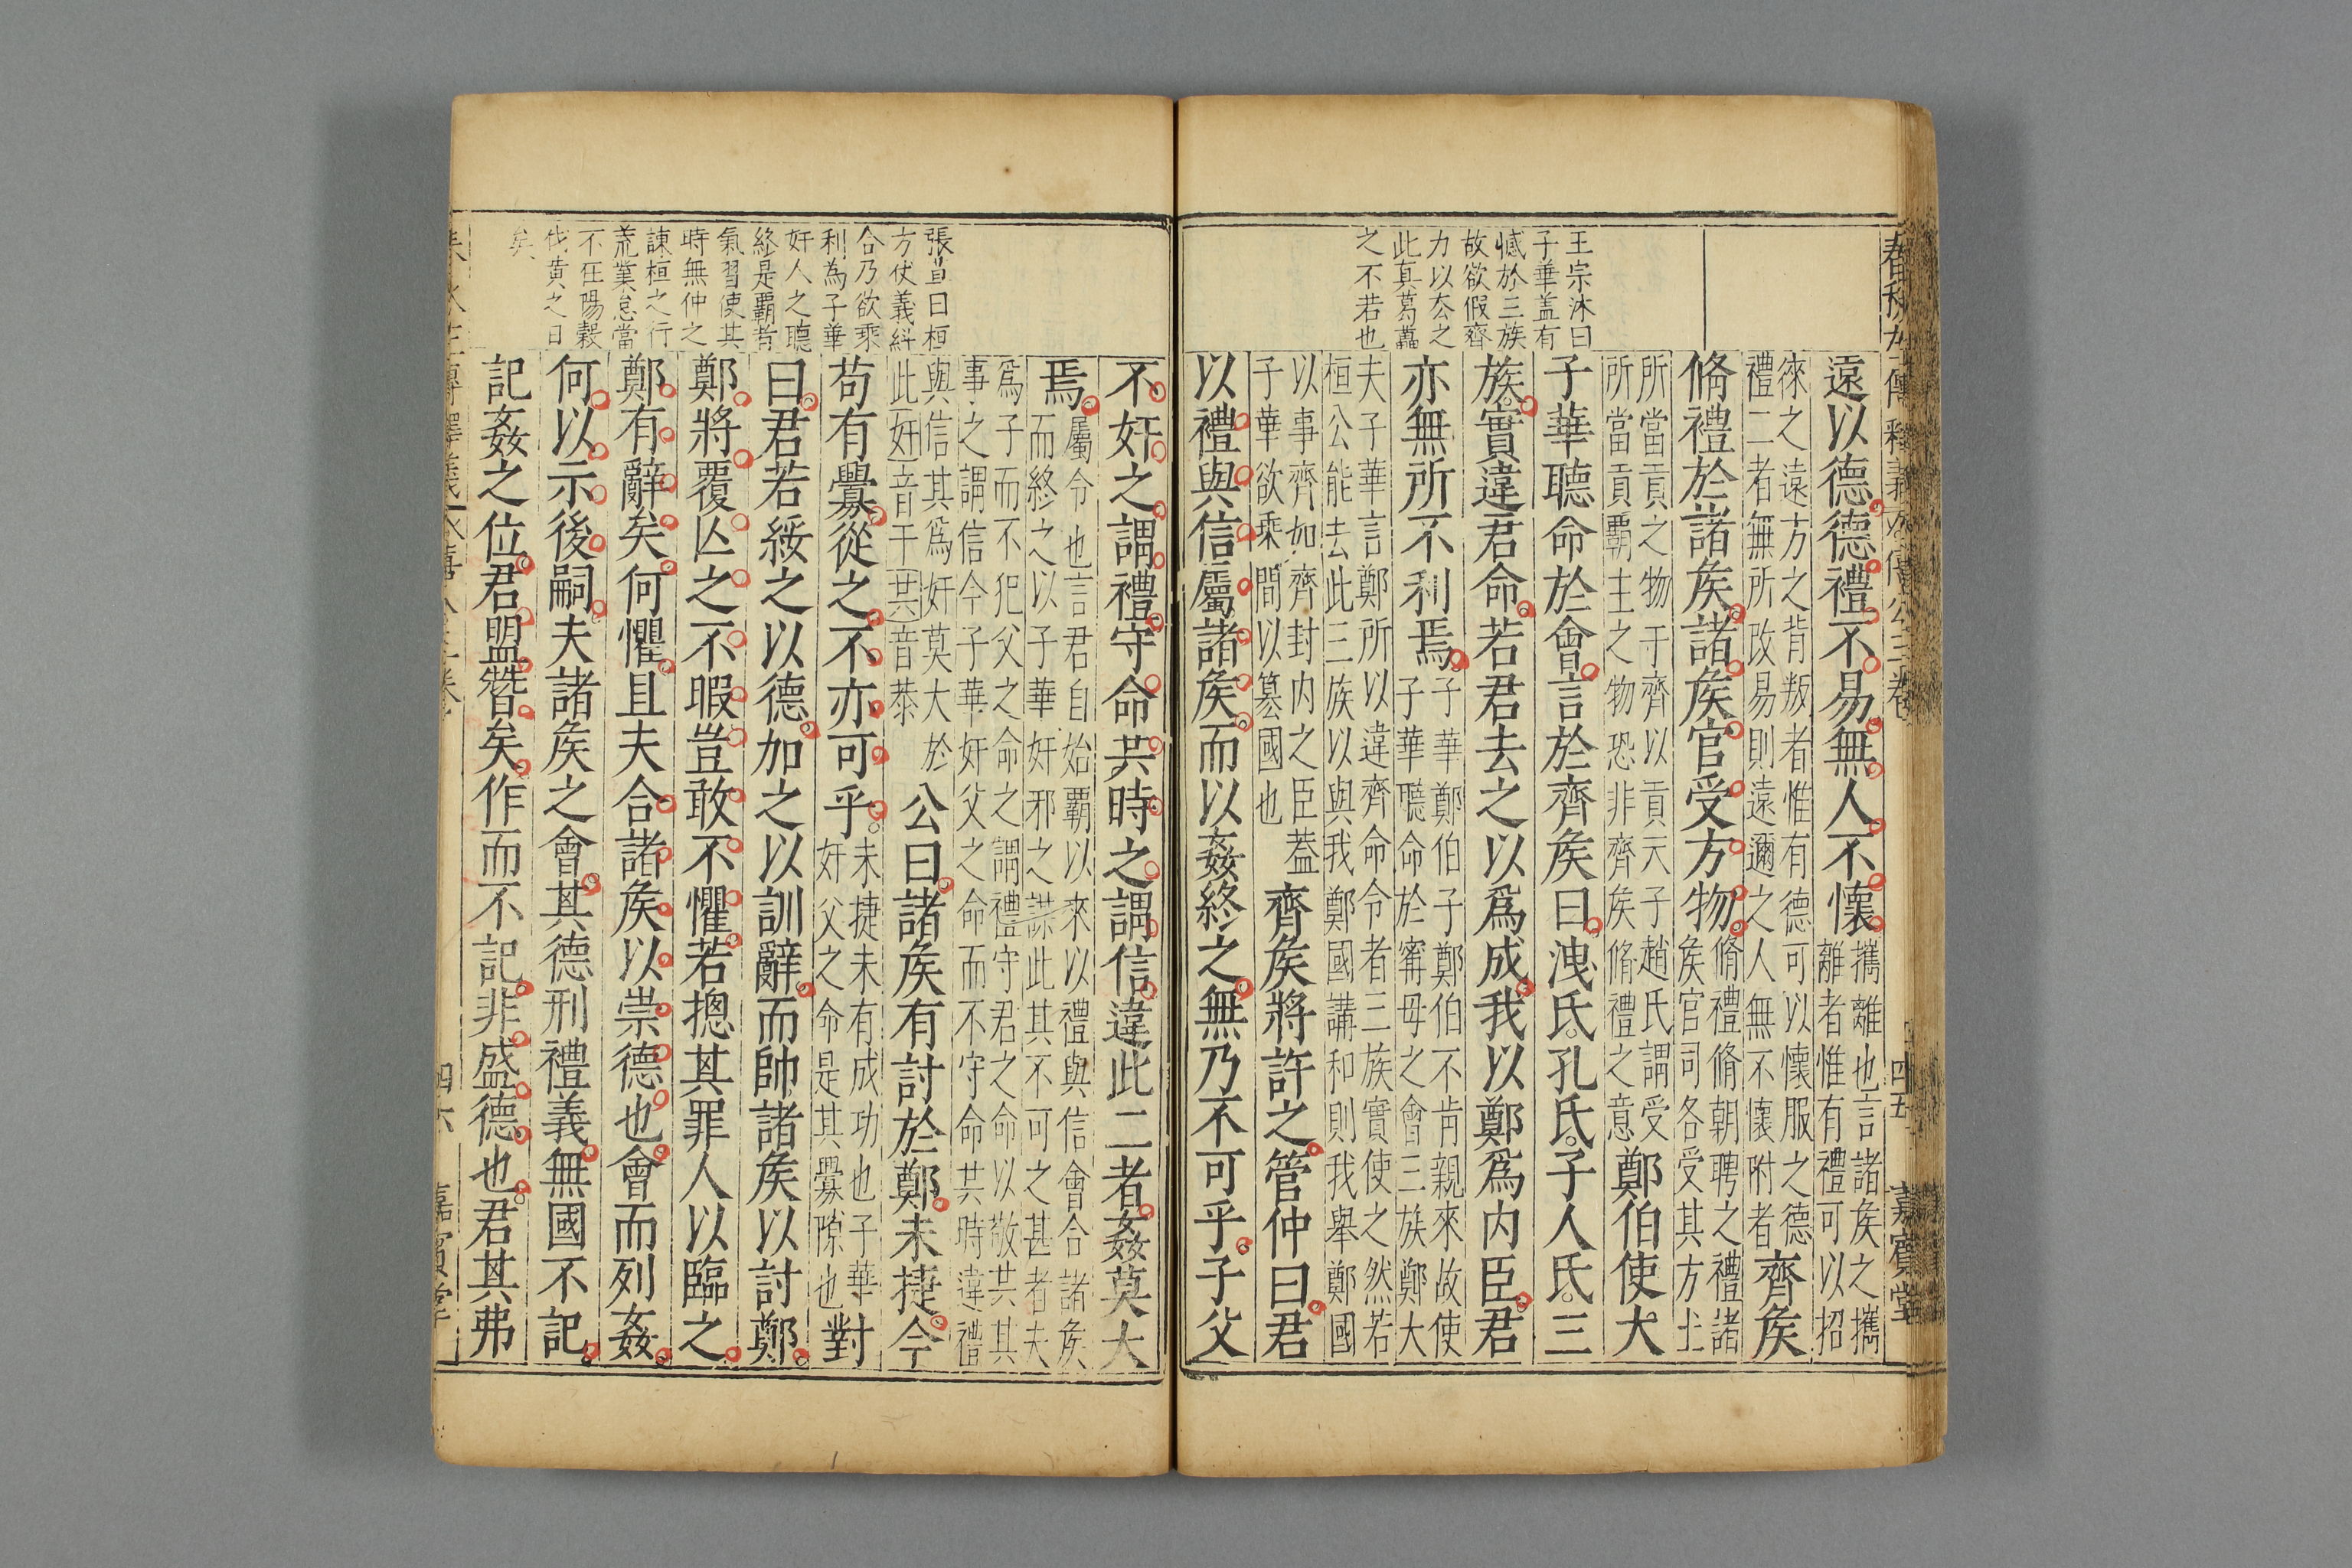 王宗沐曰
子華盖有
憾於三族
故欲假齊
力以厺之
此真葛藟
之不若也
遠以德德禮不易無人不懷
攜離也言諸矦之攜
離者惟有禮可以招
徠之遠方之背叛者惟有德可以懷服之德
禮二者無所改易則遠邇之人無不懷附者
齊矦
脩禮於諸矦諸矦官受方物
脩禮脩朝聘之禮諸
矦官司各受其方土
所當貢之物于齊以貢天子趙氏謂受
所當貢覇主之物恐非齊矦脩禮之意
鄭伯使大
子華聽命於會言於齊矦曰洩氏孔氏子人氏三
族實違君命若君去之以爲成我以鄭爲内臣君
亦無所不利焉
子華鄭伯子鄭伯不肯親來故使
子華聽命於甯毋之會三族鄭大
夫子華言鄭所以違齊命令者三族實使之然若
桓公能去此三族以與我鄭國講和則我舉鄭國
以事齊如齊封内之臣葢
子華欲乘間以篡國也
齊矦將許之管仲曰君
以禮與信屬諸矦而以姦終之無乃不可乎子父
四五
嘉賓堂
張洽曰桓
方仗義糾
合乃欲乘
利為子華
奸人之聽
終是覇者
氣習使其
時無仲之
諫桓之行
荒業怠當
不在陽穀
伐黄之日
矣
不奸之謂禮守命共時之謂信違此二者姦莫大
焉
屬令也言君自始覇以來以禮與信會合諸矦
而終之以子華奸邪之謀此其不可之甚者夫
爲子而不犯父之命之謂禮守君之命以敬共其
事之謂信今子華奸父之命而不守命共時違禮
與信其爲奸莫大於
此奸音干共音恭
公曰諸矦有討於鄭未捷今
苟有釁從之不亦可乎
未捷未有成功也子華
奸父之命是其釁隙也
對
曰君若綏之以德加之以訓辭而帥諸矦以討鄭
鄭將覆亾之不暇豈敢不懼若摠其罪人以臨之
鄭有辭矣何懼且夫合諸矦以崇德也會而列姦
何以示後嗣夫諸矦之會其德刑禮義無國不記
記姦之位君盟替矣作而不記非盛德也君其弗